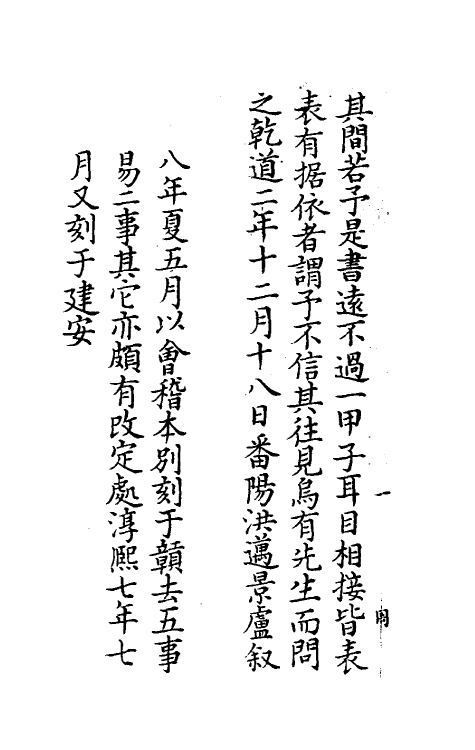 其間若予是書遠不過一甲子耳目相接皆表
表有据依者謂予不信其往見烏有先生而問
之乾道二年十二月十八日番陽洪邁景盧叙
八年夏五月以會稽本别刻于贛去五事
易二事其它亦頗有改定處淳熙七年七
月又刻于建安